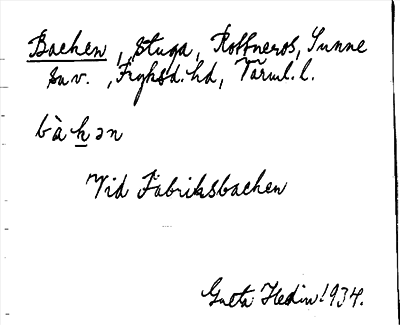 Backen, stuga, Rottneros, Sunne
sn v., Fryksd. hd, Värml. l.
bàkən
Vid Fabriksbacken
Greta Hedin 1934.